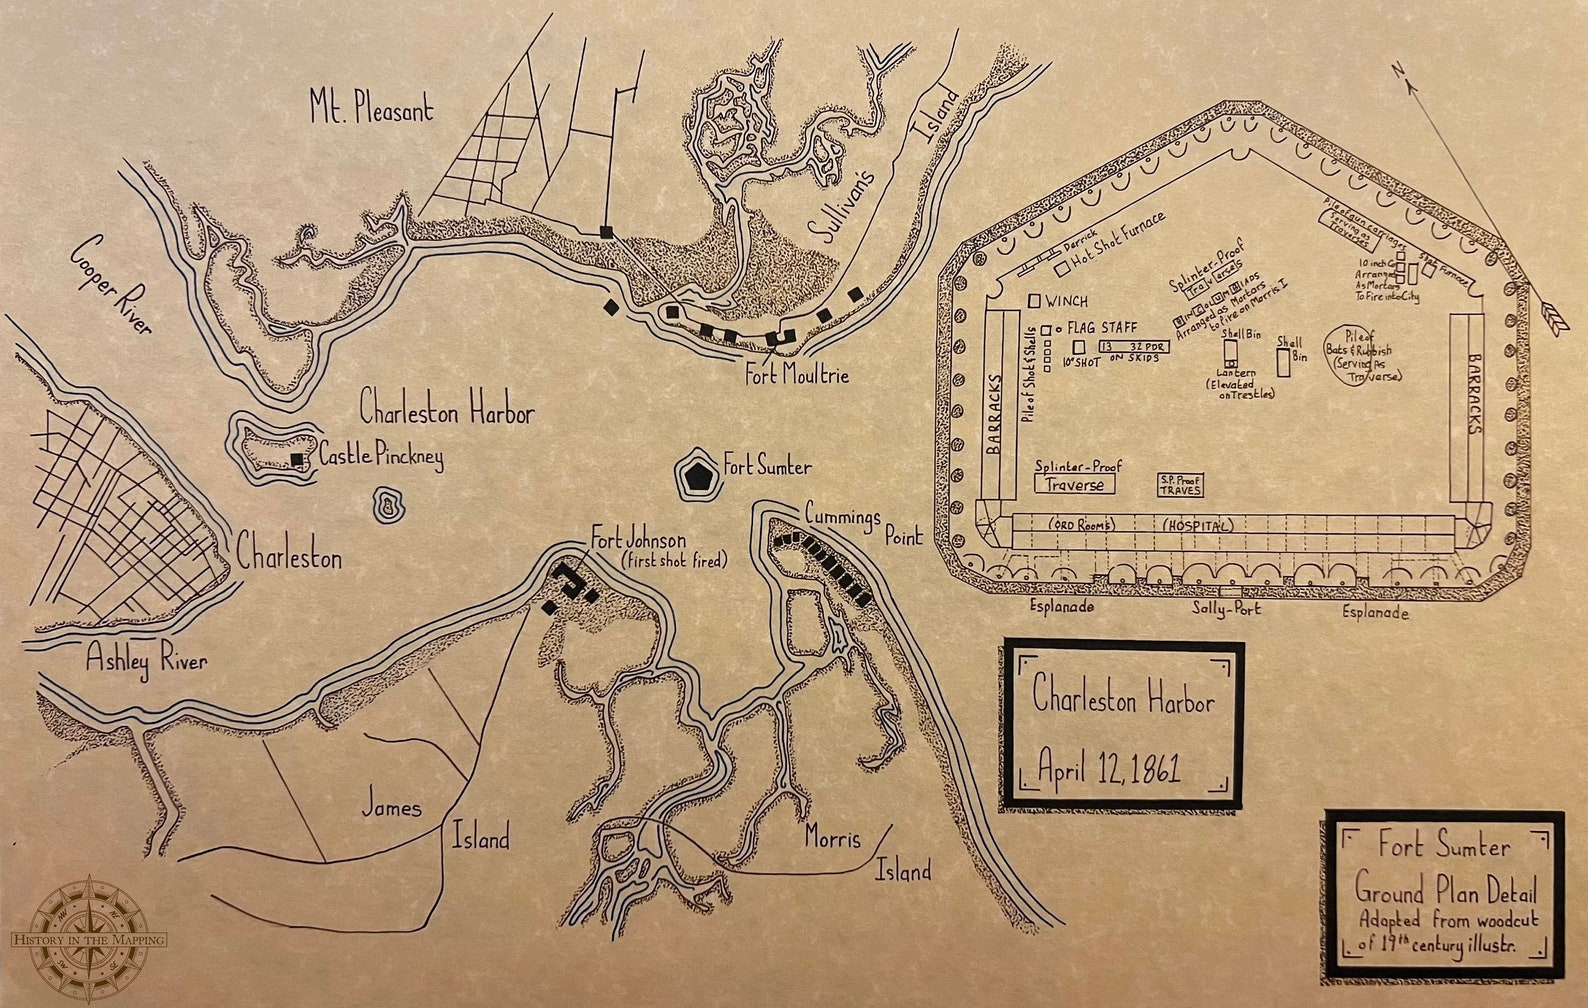 Mt. Pleasant
Cooper River
Sullivan's
Island
Charleston Harbor
Castle Pinckney
Fort Moultrie
Fort Sumter
Cummings
Point
Fort Johnson
(first shot fired)
Charleston
Ashley River
James
Island
Morris
Island
HISTORY IN THE MAPPING
NW
NE
SW
SE
N
Derrick
Hot Shot Furnace
WINCH
FLAG STAFF
10" SHOT
13 32 PDR
ON SKIDS
Pile of Shot & Shells
BARRACKS
Splinter-Proof
Traversels
Arranged as Mortars
to Fire on Morris I
Pile of Gun carriages
Serving as
Traverses
10 inch C
Arranged
As Mortars
To Fire into City
Shot Furnace
Shell Bin
Lantern
(Elevated
on Trestles)
Shell
Bin
Pile of
Bats & Rubbish
(Serving As
Traverse)
BARRACKS
Splinter-Proof
Traverse
S.P. Proof
TRAVES
(ORD ROOMS)
(HOSPITAL)
Esplanade
Sally-Port
Esplanade
Charleston Harbor
April 12, 1861
Fort Sumter
Ground Plan Detail
Adapted from woodcut
of 19th century illustr.